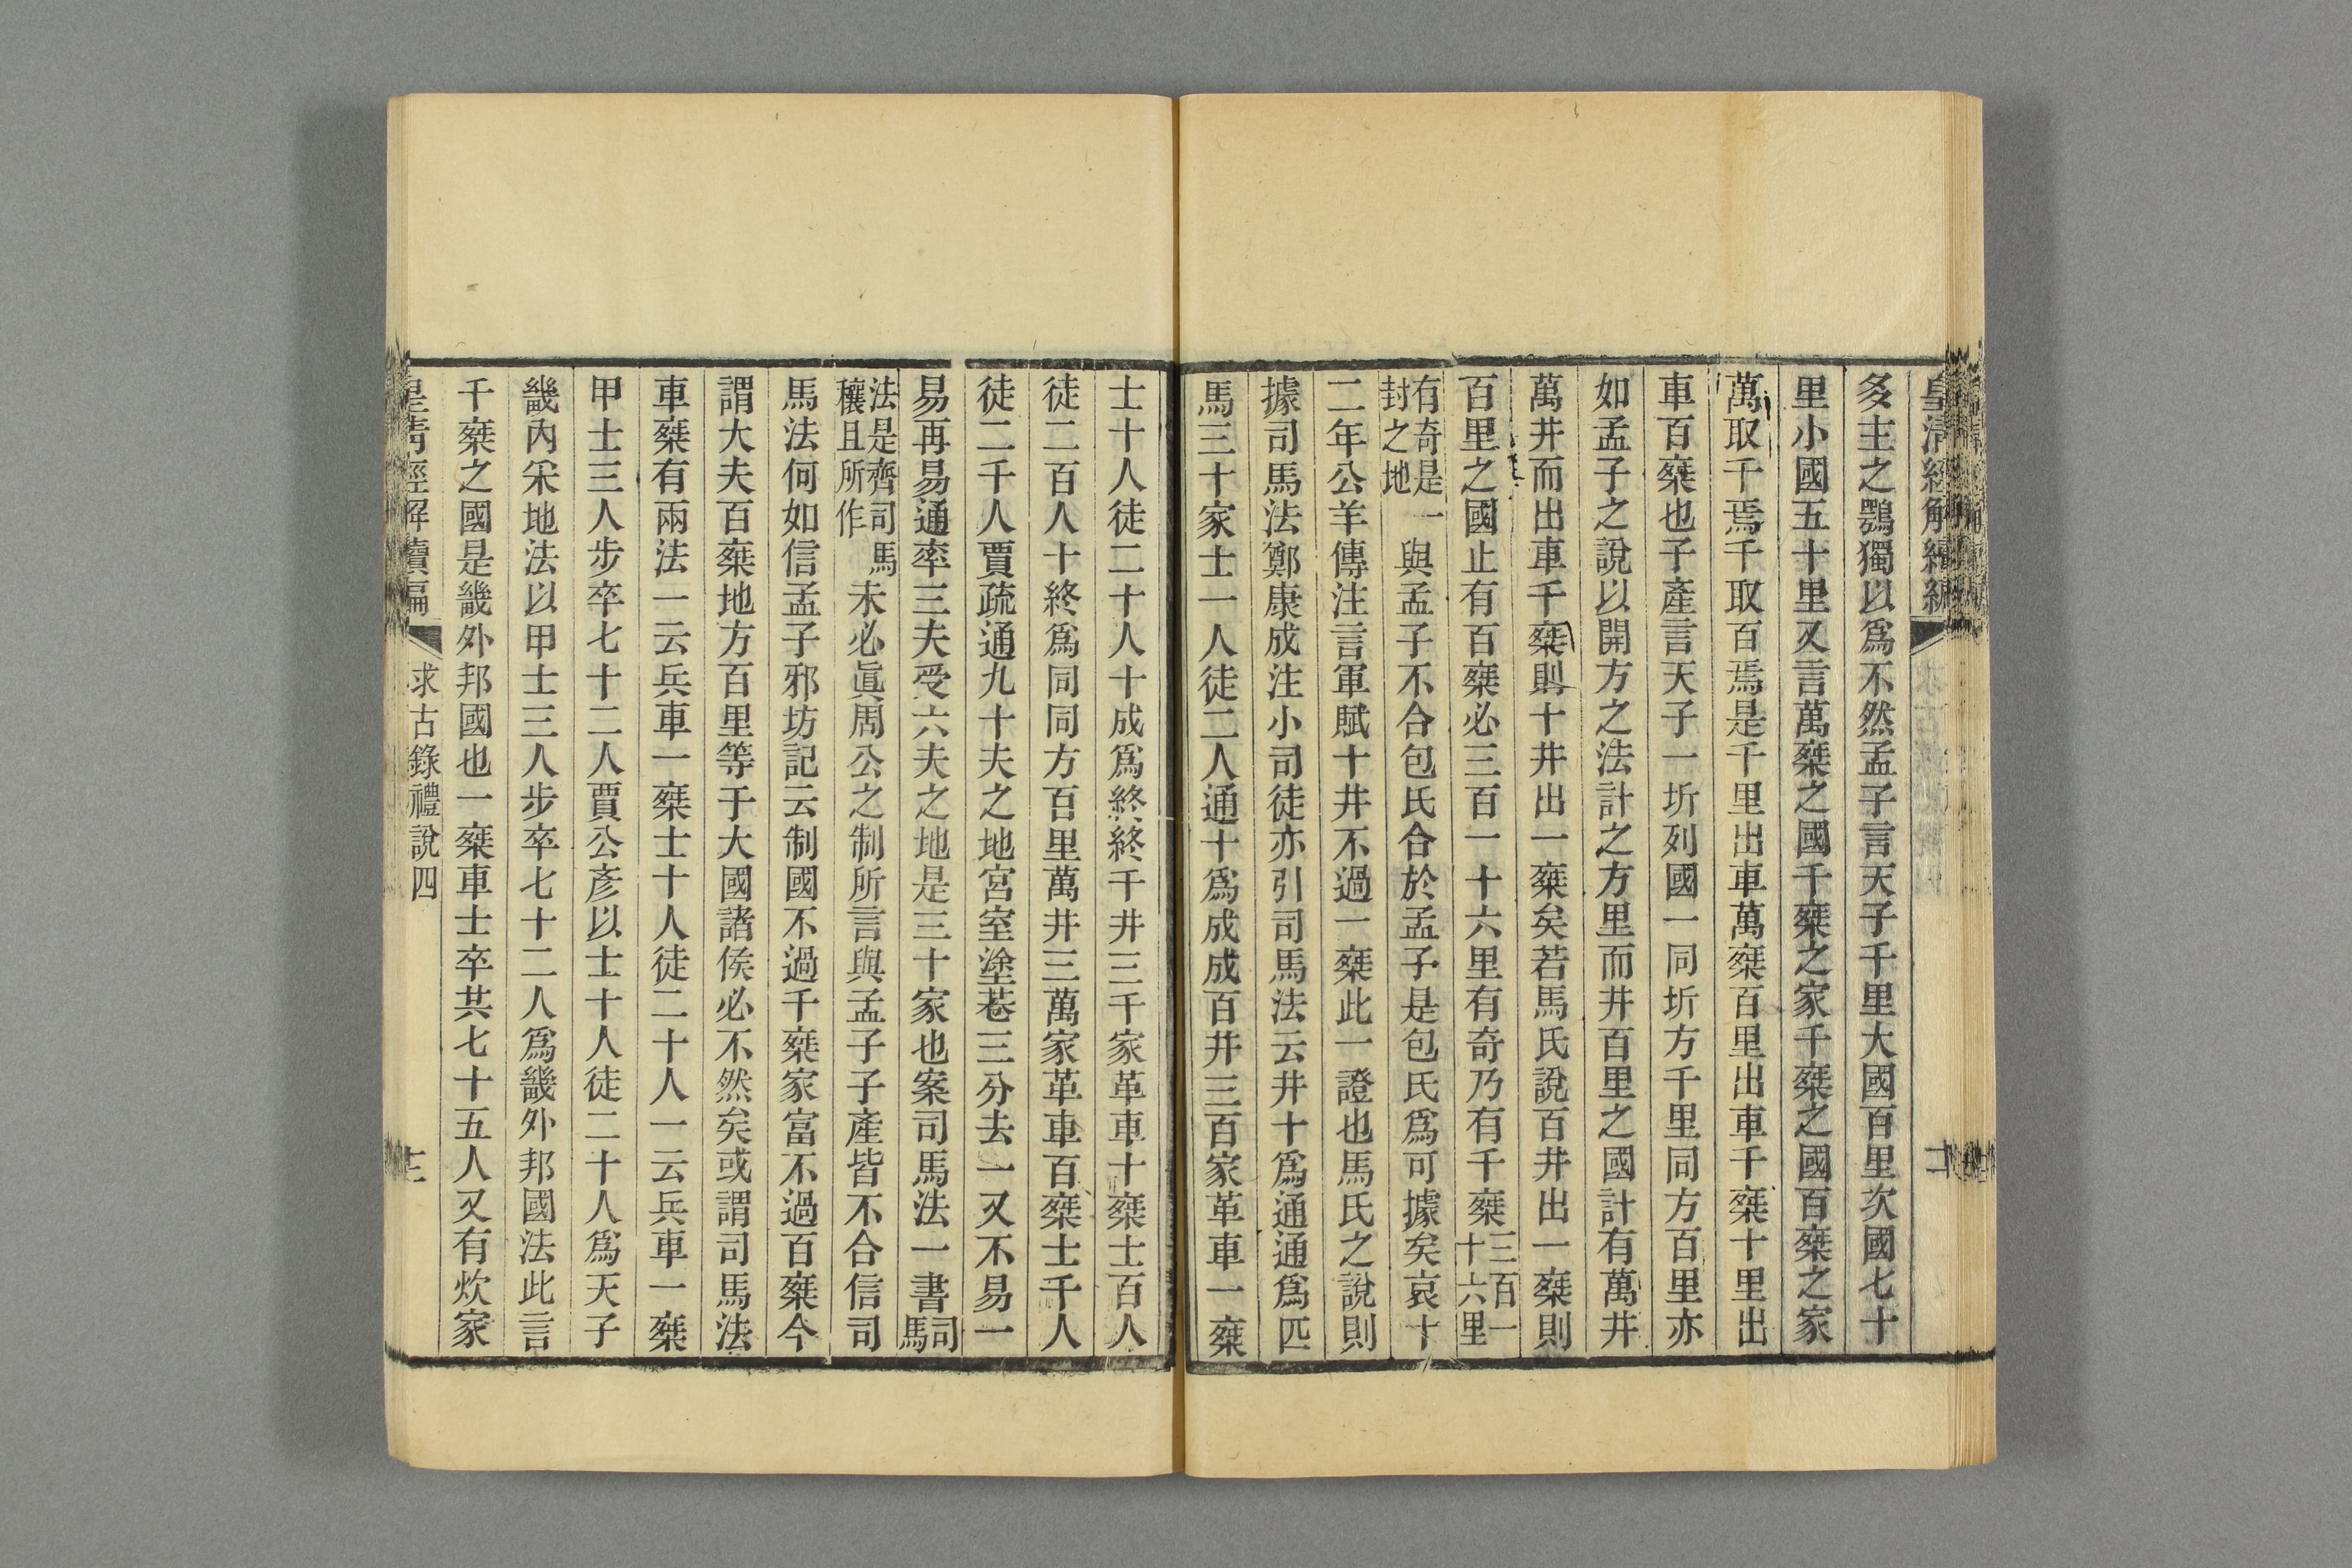 皇清經解續編
多主之鶚獨以爲不然孟子言天子千里大國百里次國七十
里小國五十里又言萬椉之國千椉之家千椉之國百椉之家
萬取千焉千取百焉是千里出車萬椉百里出車千椉十里出
車百椉也子產言天子一圻列國一同圻方千里同方百里亦
如孟子之說以開方之法計之方里而井百里之國計有萬井
萬井而出車千椉則十井出一椉矣若馬氏說百井出一椉則
百里之國止有百椉必三百一十六里有奇乃有千椉三百一十六里
有奇是一封之地與孟子不合包氏合於孟子是包氏爲可據矣哀十
二年公羊傳注言軍賦十井不過一椉此一證也馬氏之說則
據司馬法鄭康成注小司徒亦引司馬法云井十爲通通爲匹
馬三十家士一人徒二人通十爲成成百井三百家革車一椉
士十人徒二十人十成爲終終千井三千家革車十椉士百人
徒二百人十終爲同同方百里萬井三萬家革車百椉士千人
徒二千人賈疏通九十夫之地宮室塗巷三分去一又不易一
易再易通率三夫受六夫之地是三十家也案司馬法一書司馬
法是齊司馬穰且所作未必眞周公之制所言與孟子子產皆不合信司
馬法何如信孟子邪坊記云制國不過千椉家富不過百椉今
謂大夫百椉地方百里等于大國諸侯必不然矣或謂司馬法
車椉有兩法一云兵車一椉士十人徒二十人一云兵車一椉
甲士三人步卒七十二人賈公彥以士十人徒二十人爲天子
畿內采地法以甲士三人步卒七十二人爲畿外邦國法此言
千椉之國是畿外邦國也一椉車士卒共七十五人又有炊家
皇清經解續編
求古錄禮說四